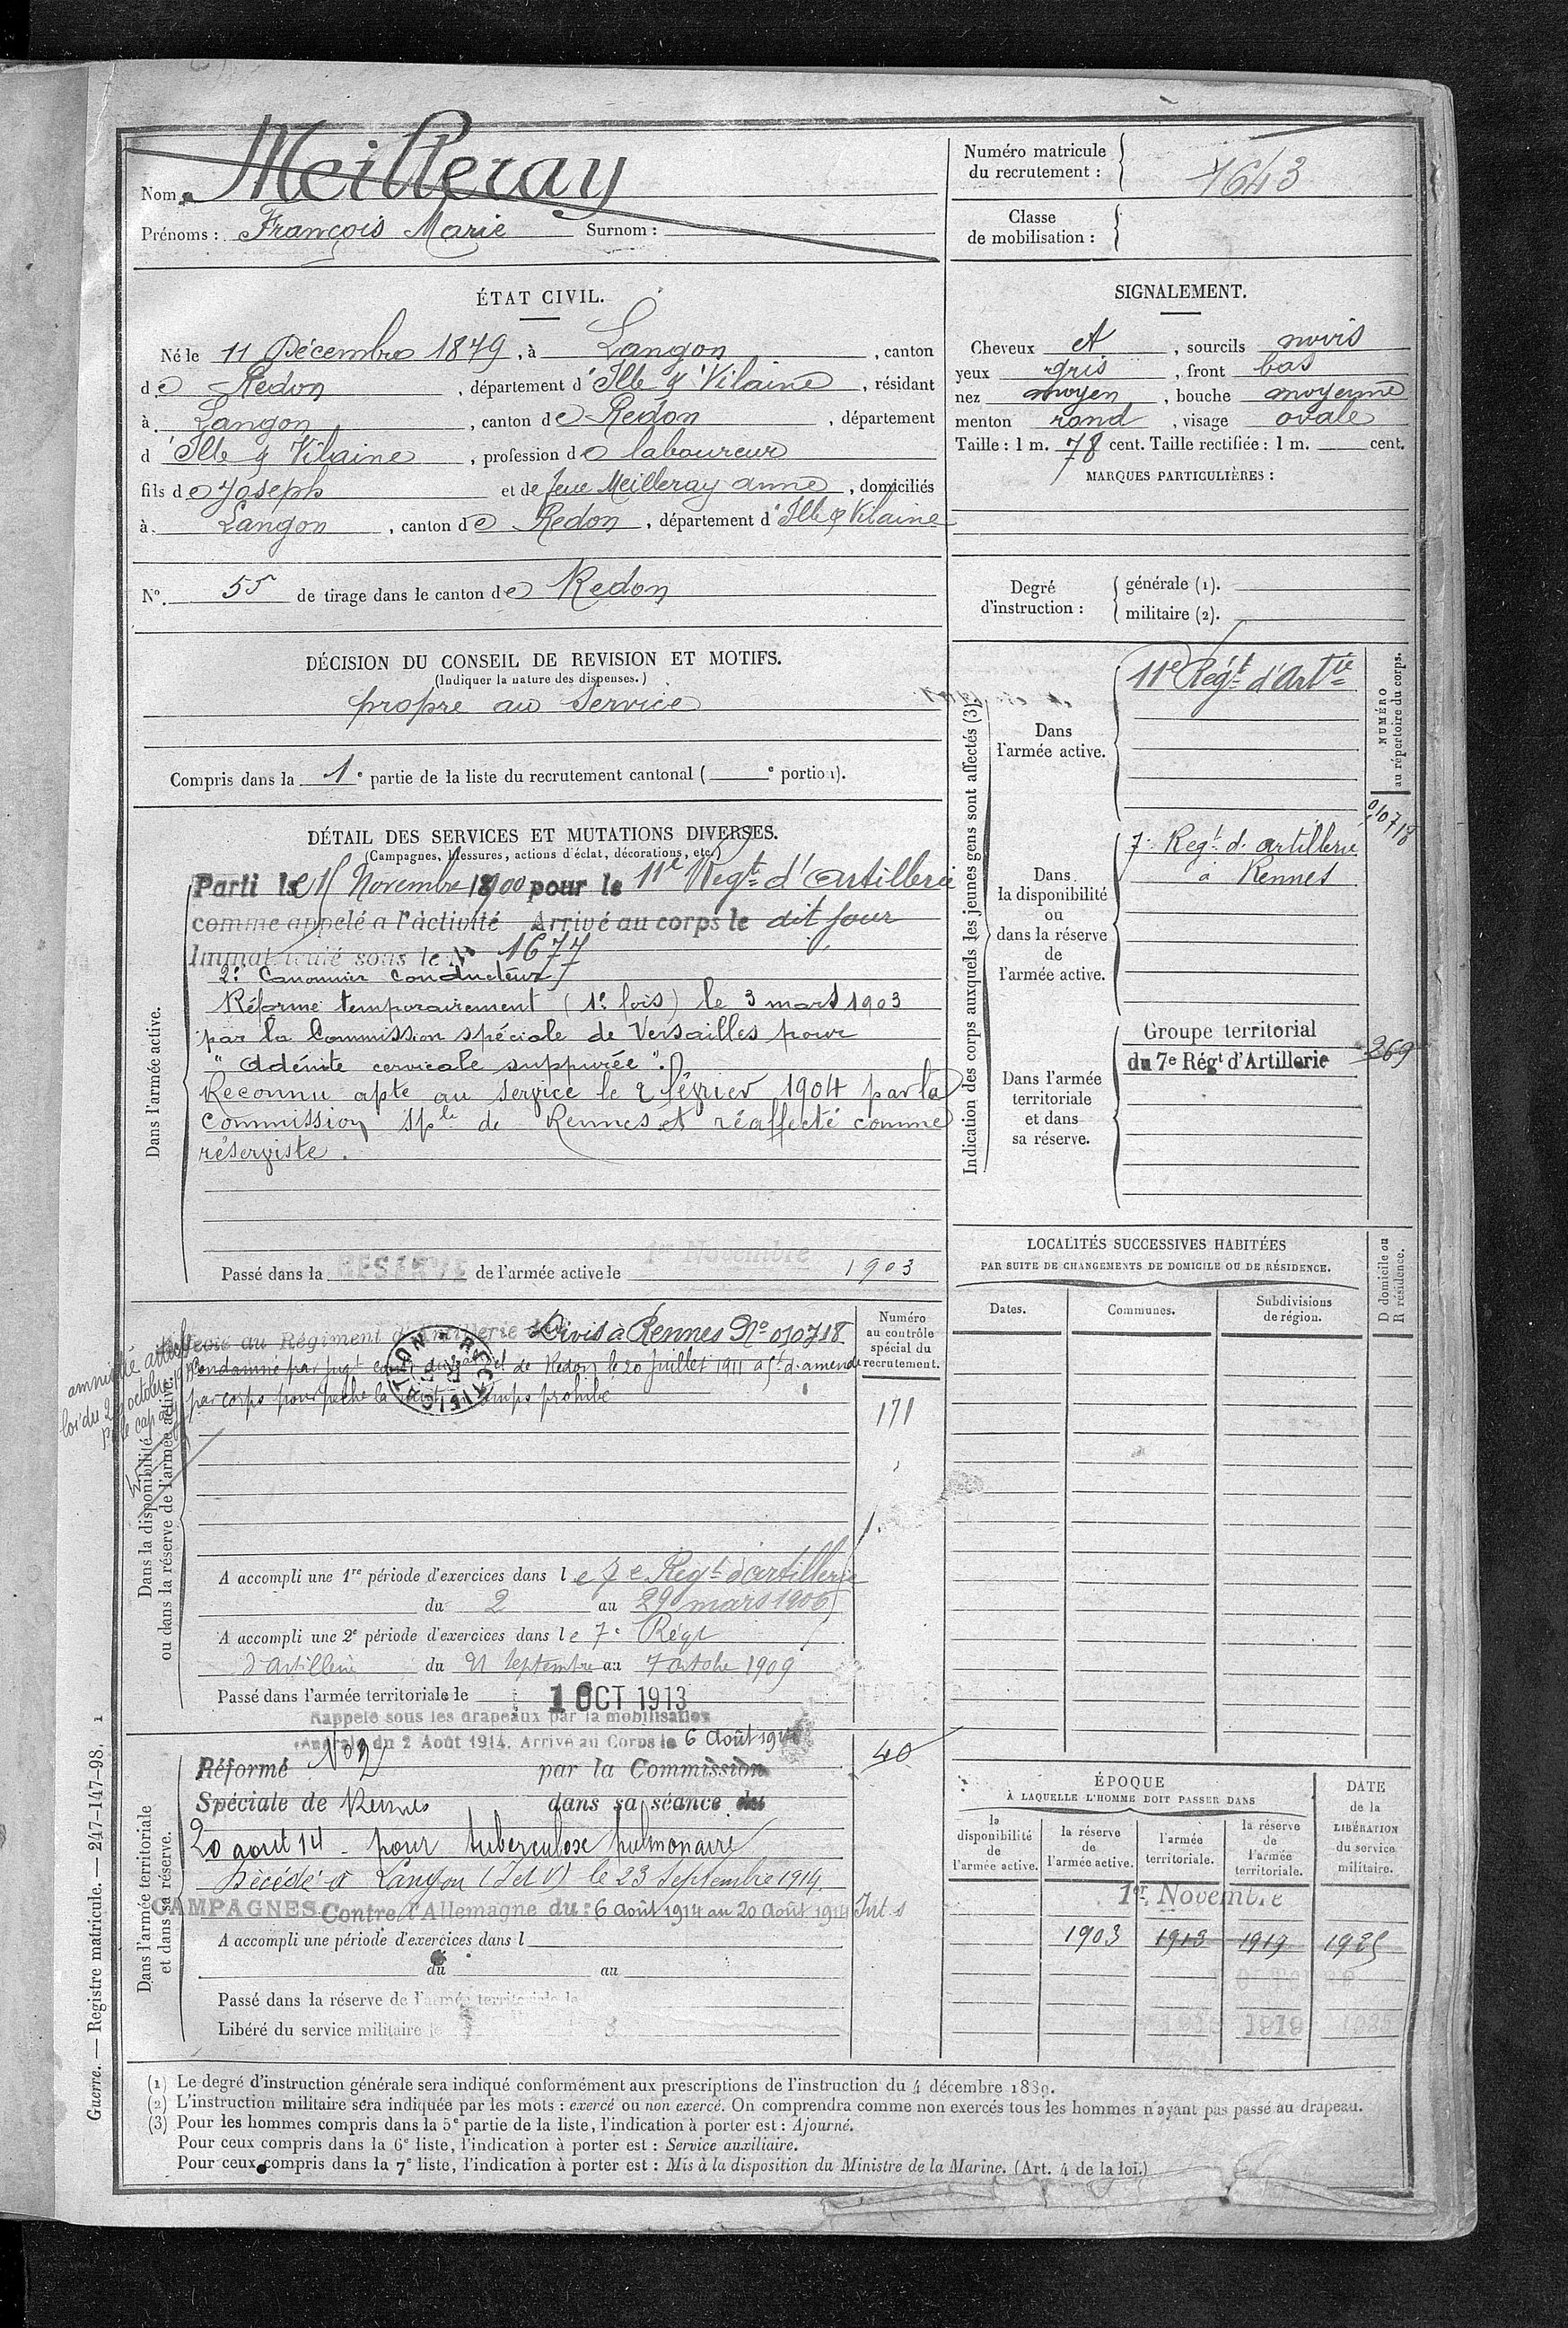 Nom : Meilleray
Prénoms : François Marie Surnom :
Numéro matricule
du recrutement : 1643
Classe
de mobilisation :
ÉTAT CIVIL.
Né le 11 Décembre 1879, à Langon, canton
de Redon, département d'Ille & Vilaine, résidant
à Langon, canton de Redon, département
d'Ille & Vilaine, profession de laboureur
fils de Joseph et de feue Meilleray anne, domiciliés
à Langon, canton de Redon, département d'Ille & Vilaine
N° 55 de tirage dans le canton de Redon
SIGNALEMENT.
Cheveux et, sourcils noirs
yeux gris, front bas
nez moyen, bouche moyenne
menton rond, visage ovale
Taille : 1 m. 78 cent. Taille rectifiée : 1 m. cent.
MARQUES PARTICULIÈRES :
Degré
d'instruction :
générale (1).
militaire (2).
DÉCISION DU CONSEIL DE REVISION ET MOTIFS.
(Indiquer la nature des dispenses.)
propre au Service
Compris dans la 1e partie de la liste du recrutement cantonal ( e portion).
DÉTAIL DES SERVICES ET MUTATIONS DIVERSES.
(Campagnes, blessures, actions d'éclat, décorations, etc.)
Dans l'armée active.
Parti le 15 Novembre 1900 pour le 11e Regt d'Artillerie
comme appelé a l'activité Arrivé au corps le dit jour
Immatriculé sous le N° 1677
2e Canonnier conducteur
Réformé temporairement (1e fois) le 3 mars 1903
par la Commission spéciale de Versailles pour
"Adénite cervicale suppurée".
Reconnu apte au service le 2 février 1904 par la
Commission sple de Rennes et réaffecté comme
réserviste.
Passé dans la RÉSERVE de l'armée active le 1er Novembre 1903
Indication des corps auxquels les jeunes gens sont affectés (3)
NUMÉRO
au répertoire du corps.
Dans
l'armée active.
11e Régt d'Artie
Dans
la disponibilité
ou
dans la réserve
de
l'armée active.
7e Regt d'artillerie
à Rennes
010718
Dans l'armée
territoriale
et dans
sa réserve.
Groupe territorial
du 7e Régt d'Artillerie
269
Dans la disponibilité
ou dans la réserve de l'armée active.
au Régiment d'Artillerie Divis à Rennes N° 010718
Condamné par jugt de Redon le 20 Juillet 1911 à 5f d'amende
par corps pour pêche la nuit en temps prohibé
RECTIFICATION
amnistié
loi du octobre
Numéro
au contrôle
spécial du
recrutement.
171
A accompli une 1re période d'exercices dans le 7e Regt d'artillerie
du 2 au 29 mars 1906
A accompli une 2e période d'exercices dans le 7e Régt
d'Artillerie du 21 Septembre au 7 octobre 1909
Passé dans l'armée territoriale le 1 OCT 1913
Dans l'armée territoriale
et dans sa réserve.
Rappelé sous les drapeaux par la mobilisation
générale du 2 Août 1914. Arrivé au Corps le 6 Août 1914
40
Réformé N° 2 par la Commission
Spéciale de Rennes dans sa séance du
20 aout 14 - pour tuberculose pulmonaire
Décédé à Langon (I et V) le 23 Septembre 1914.
CAMPAGNES Contre l'Allemagne du : 6 Août 1914 au 20 Août 1914 Int.
A accompli une période d'exercices dans l
du au
Passé dans la réserve de l'armée territoriale le
Libéré du service militaire le
LOCALITÉS SUCCESSIVES HABITÉES
PAR SUITE DE CHANGEMENTS DE DOMICILE OU DE RÉSIDENCE.
Dates. Communes. Subdivisions
de région.
D domicile ou
R résidence.
ÉPOQUE
À LAQUELLE L'HOMME DOIT PASSER DANS
la
disponibilité
de
l'armée active.
la réserve
de
l'armée active.
l'armée
territoriale.
la réserve
de
l'armée
territoriale.
DATE
de la
LIBÉRATION
du service
militaire.
1er Novembre
1903 1913 1919 1925
(1) Le degré d'instruction générale sera indiqué conformément aux prescriptions de l'instruction du 4 décembre 1889.
(2) L'instruction militaire sera indiquée par les mots : exercé ou non exercé. On comprendra comme non exercés tous les hommes n'ayant pas passé au drapeau.
(3) Pour les hommes compris dans la 5e partie de la liste, l'indication à porter est : Ajourné.
Pour ceux compris dans la 6e liste, l'indication à porter est : Service auxiliaire.
Pour ceux compris dans la 7e liste, l'indication à porter est : Mis à la disposition du Ministre de la Marine. (Art. 4 de la loi.)
Guerre. — Registre matricule. — 247-147-98. 1